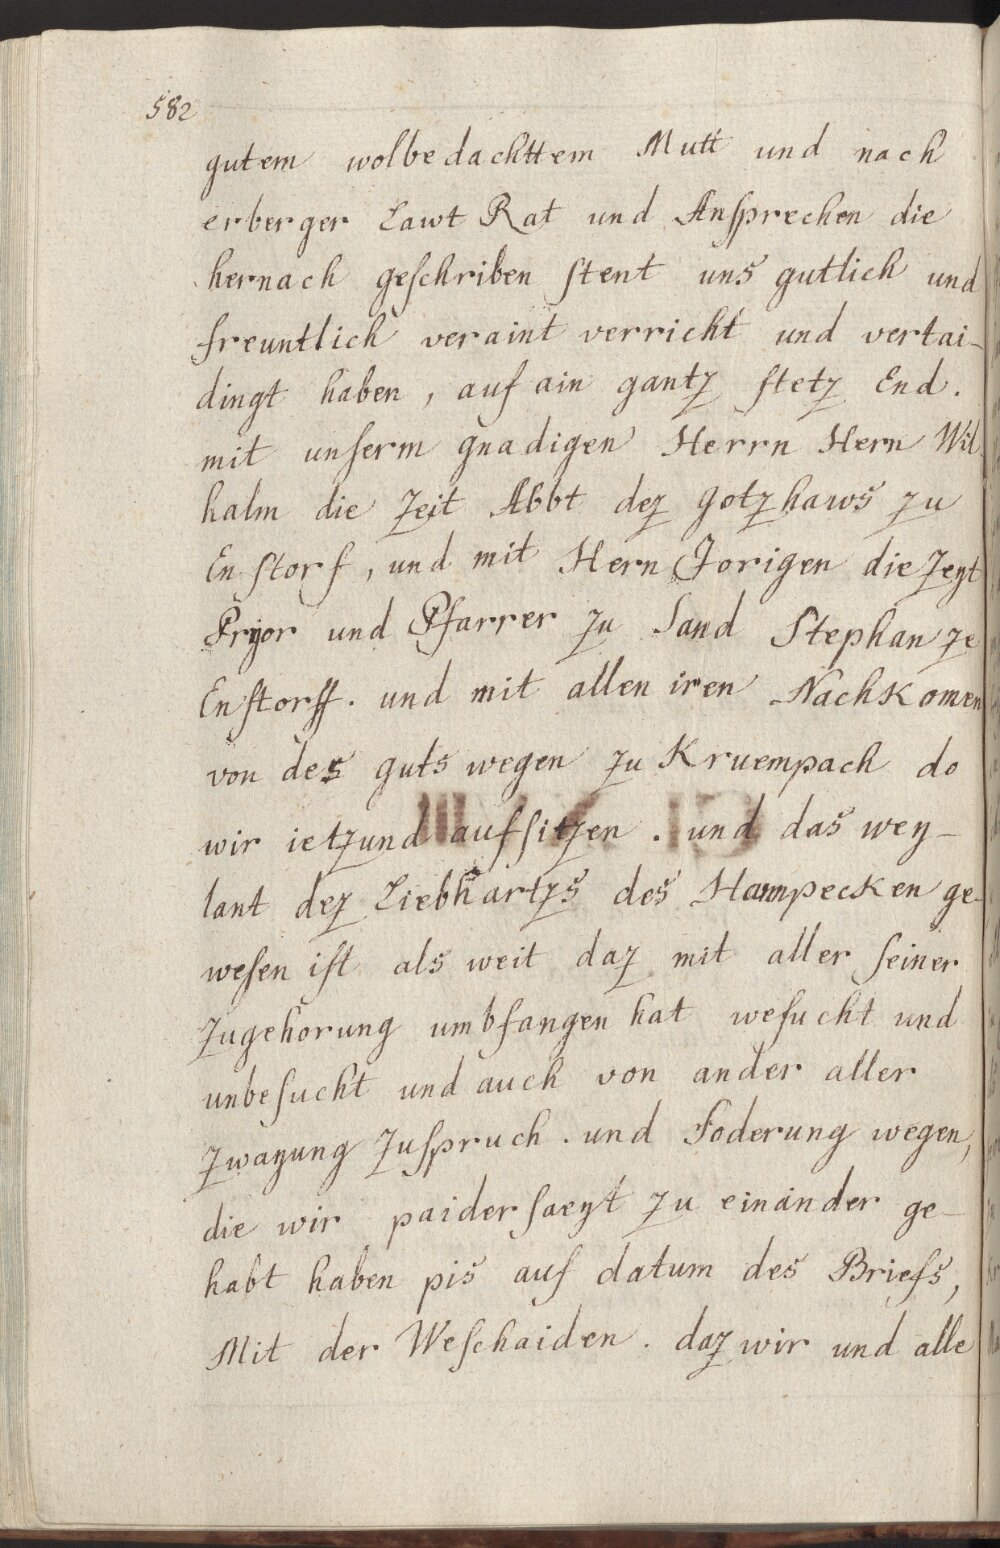 582
gutem wolbedachttem Mutt und nach
erberger Lawt Rat und Ansprechen die
hernach geschriben stent uns gutlich und
freuntlich veraint verricht und vertai-
dingt haben, auf ain gantz stetz End.
mit unserm gnadigen Herrn Hern Wil
halm die Zeit Abbt dez gotzhaws zu
Enstorf, und mit Hern Jorigen die Zeyt
Pryor und Pfarrer zu Sand Stephan ze
Enstorff. und mit allen iren Nachkomen
von des guts wegen zu Kruempach do
wir ietzund aufsitzen. und das wey-
lant dez Liebhartzs des Hannpecken ge-
wesen ist als weit daz mit aller seiner
Zugehorung umbfangen hat wesucht und
unbesucht und auch von ander aller
zwayung Zuspruch. und Foderung wegen,
die wir paidersaeyt zu einander ge-
habt haben pis auf datum des Briefs,
Mit der Weschaiden. daz wir und alle